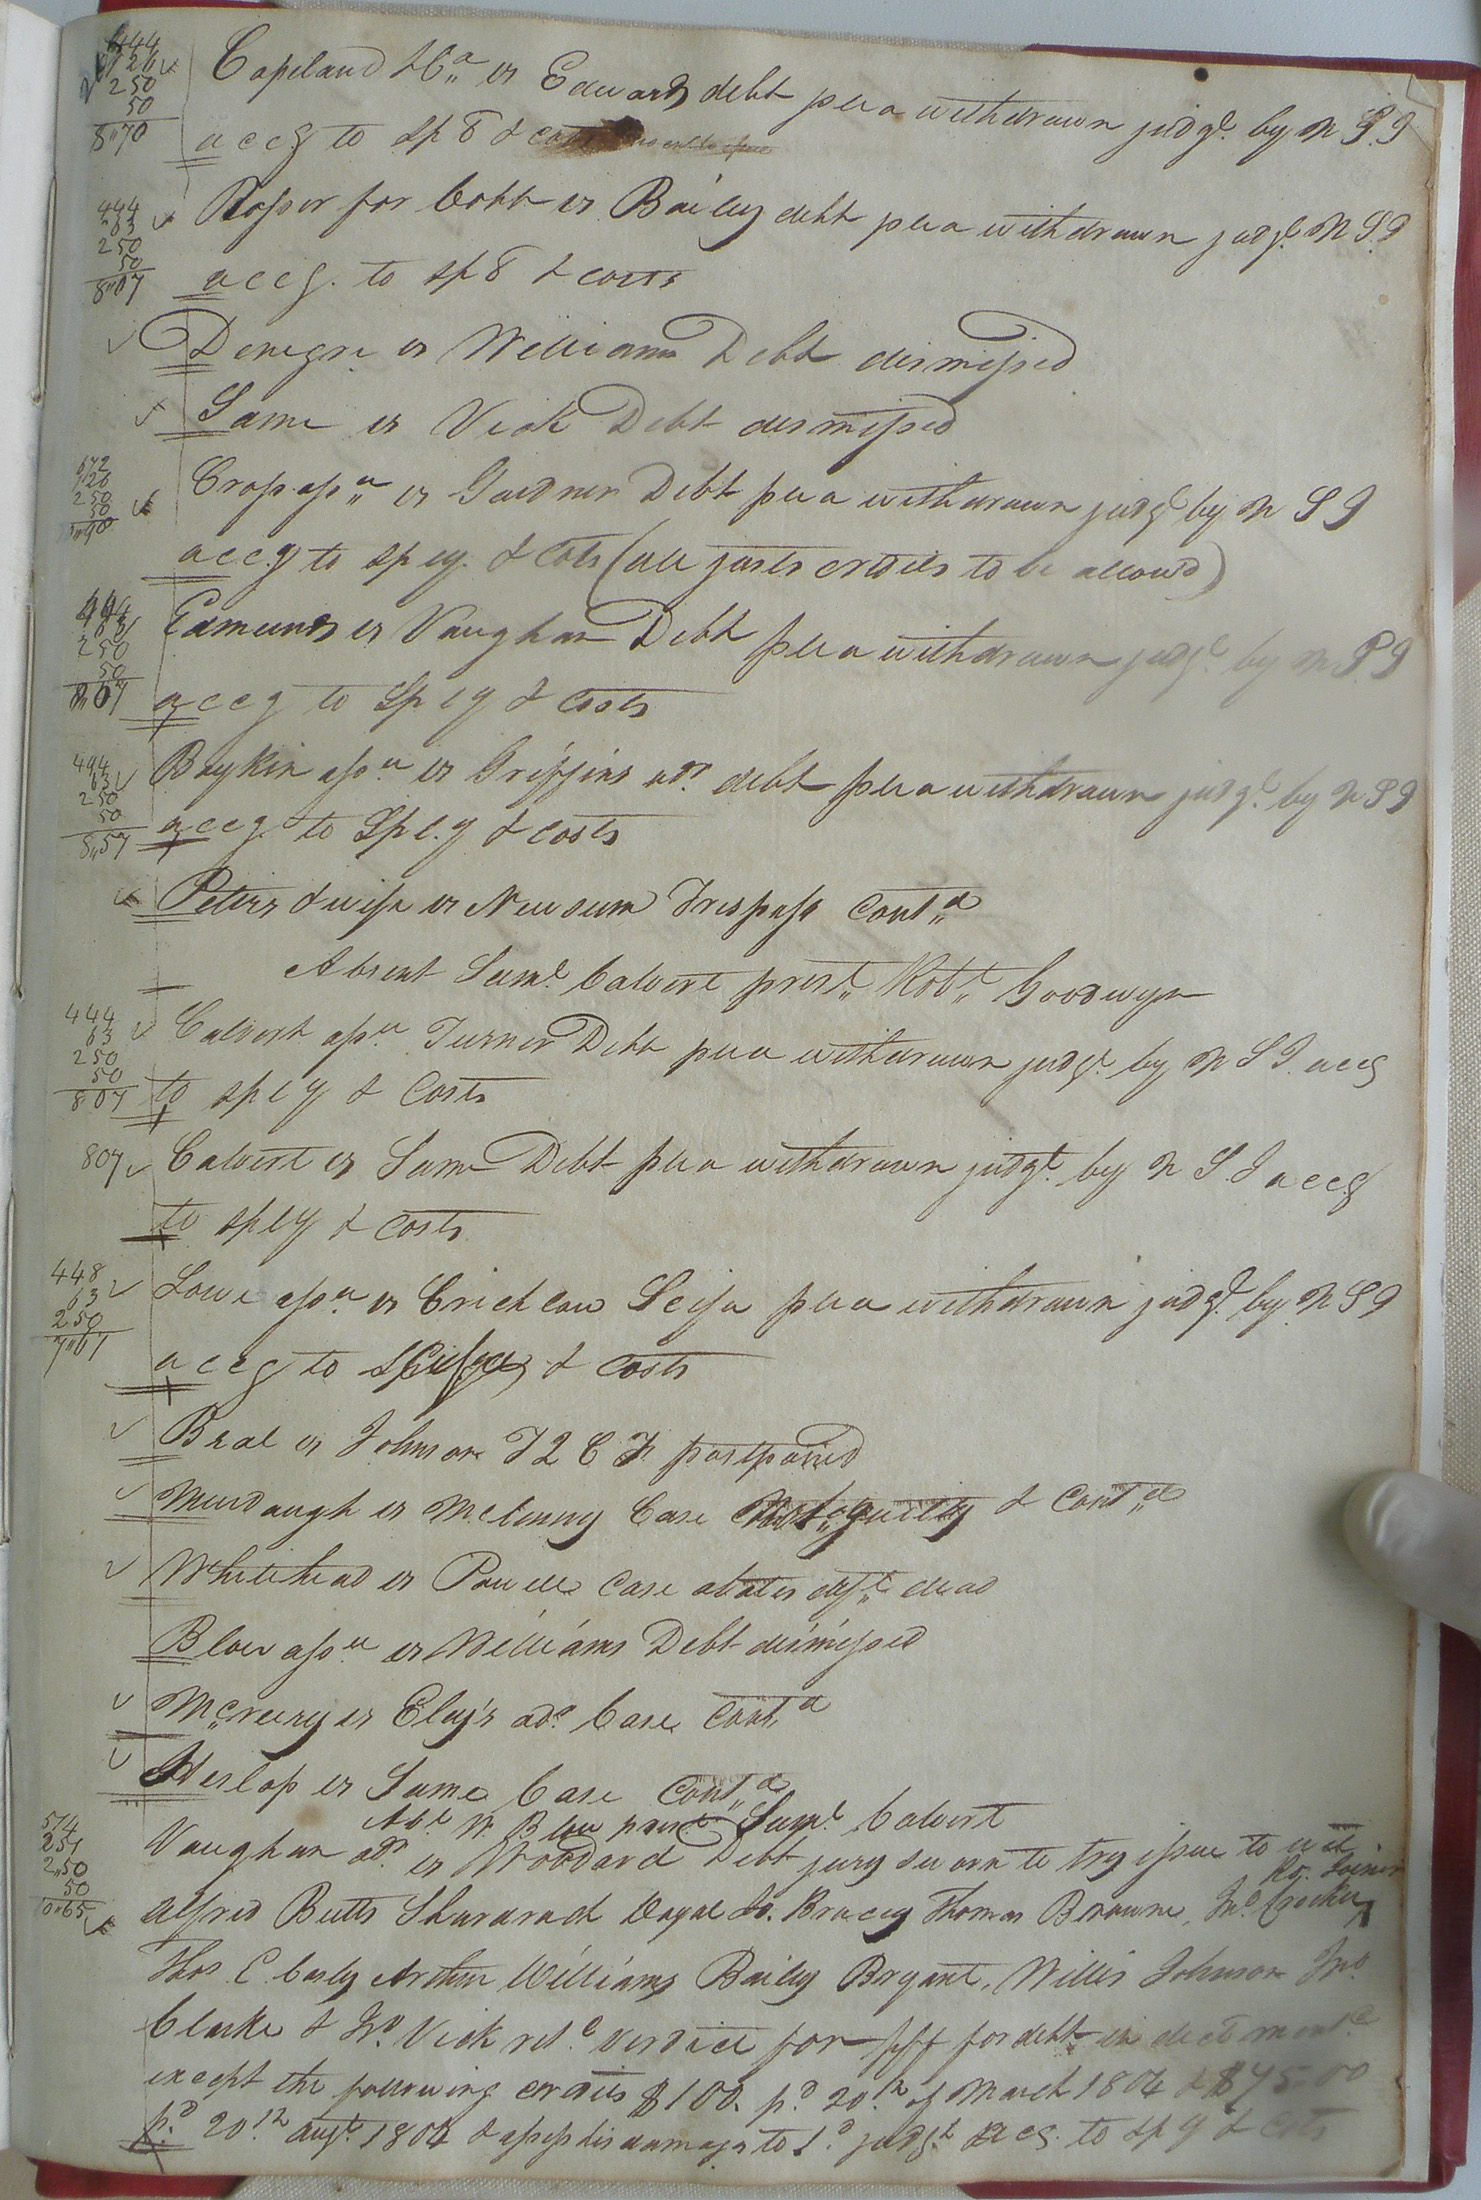 444
126
250
50
8"70
Copeland & Co vs Edwards debt plea withdrawn judgt by N S I
accg to sp & costs
444
63
250
50
8"07
Rosser for Cobb vs Bailey debt plea withdrawn judgt N S I
accg. to sp & costs
Denegre vs Williams Debt dismissed
Same vs Vick Debt dismissed
672
126
250
50
Cross assee vs Gardner Debt plea withdrawn judgt by N S I
accg to sp ey. & Costs (all just credits to be allowd)
444
63
250
50
8"07
Edmunds vs Vaughan Debt plea withdrawn judgt by N S I
accg to sp ey & costs
494
63
250
50
8"57
Boykin assee vs Griffins adr debt plea withdrawn judgt by N S I
accg to Sp ey & costs
Peters & wife vs Newsum Trespass Contd
Absent Saml Calvert prest Robt Goodwyn
444
63
250
50
807
Calvert assee Turner Debt plea withdrawn judgt by N S I accg
to sp ey & Costs
807
Calvert vs Same Debt plea withdrawn judgt by N S I accg
to sp ey & Costs
448
63
250
7"61
Lowe assee vs Crichlow Scifa plea withdrawn judgt by N S I
accg to & costs
Beal vs Johnson postponed
Murdaugh vs McClenny Case Not guilty & Contd
Whitehead vs Powell Case abates deft dead
Blow assee vs Williams Debt dismissed
McCreery vs Eley's ado Case Contd
Heslop vs Same Case Contd
Abt W. Blow prest Saml Calvert
574
251
2,50
50
10"65
Vaughan adr vs Woodard Debt jury sworn to try issue to wit
Alfred Butts Shararach Bracey Thomas Browne, Jno Crocker
Thos C. Cary Arthur Williams Bailey Bryant, Willis Johnson Jno
Clarke & Jno Vick retd verdict for plff for debt in dect mentd
except the following credits $100. pd 20th of March 1804 & $75.00
pd 20th augt 1804 & assess his damages to 1d judgt accg. to sp ey & Costs